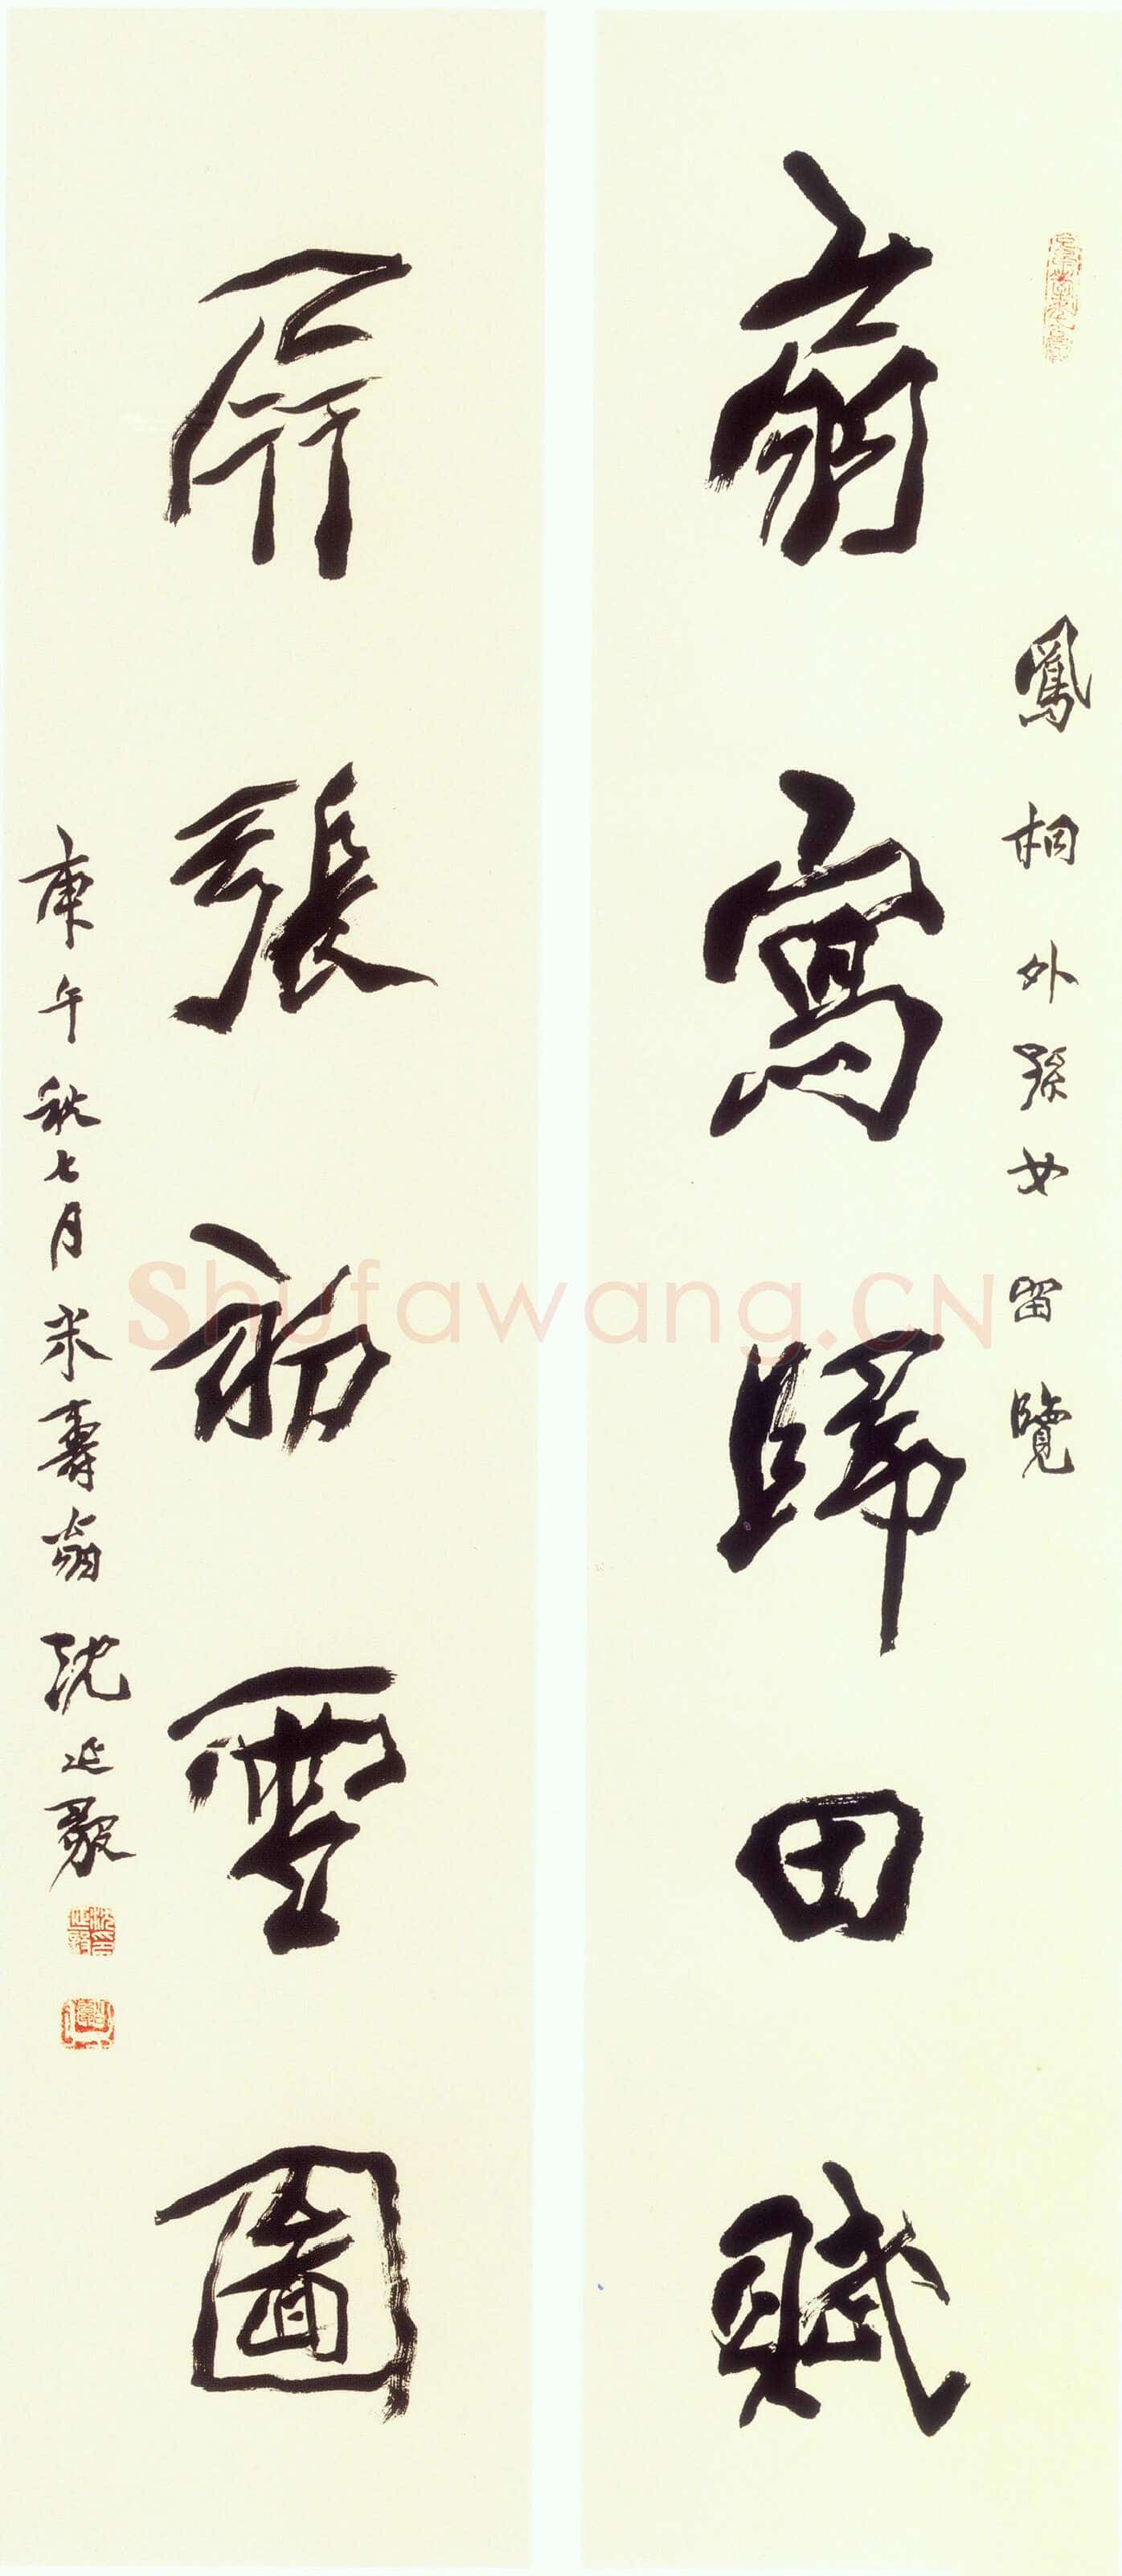 鳳桐外孫女留覽
扇寫歸田賦
屏張初雪圖
庚午秋七月米壽翁沈延毅
Shufawang.CN